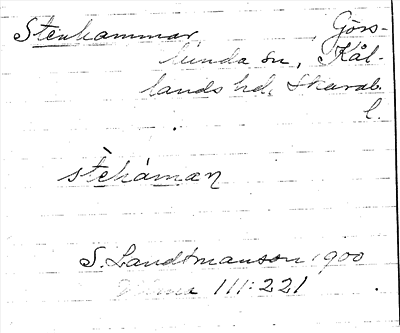 Stenhammar, Görs-
lunda sn, Kål-
lands hd, Skarab.
l.
stèhámaɲ
S. Landtmanson 1900
111:221